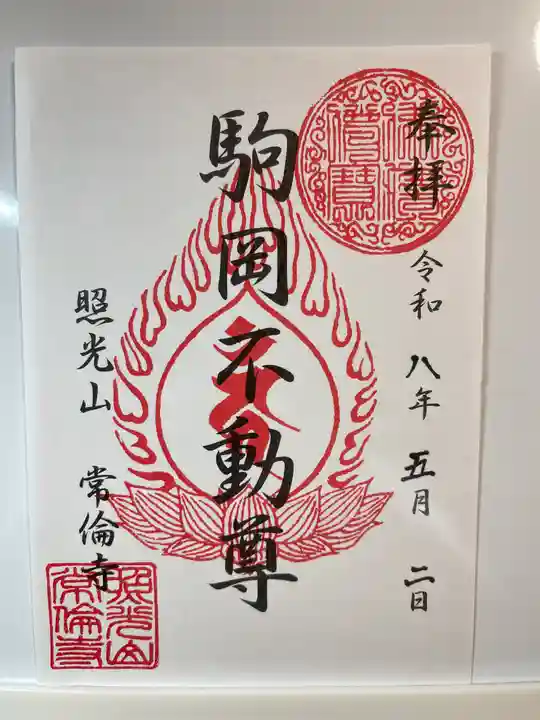 奉拝
令和八年五月二日
駒岡不動尊
照光山 常倫寺
佛法僧寶
照光山常倫寺